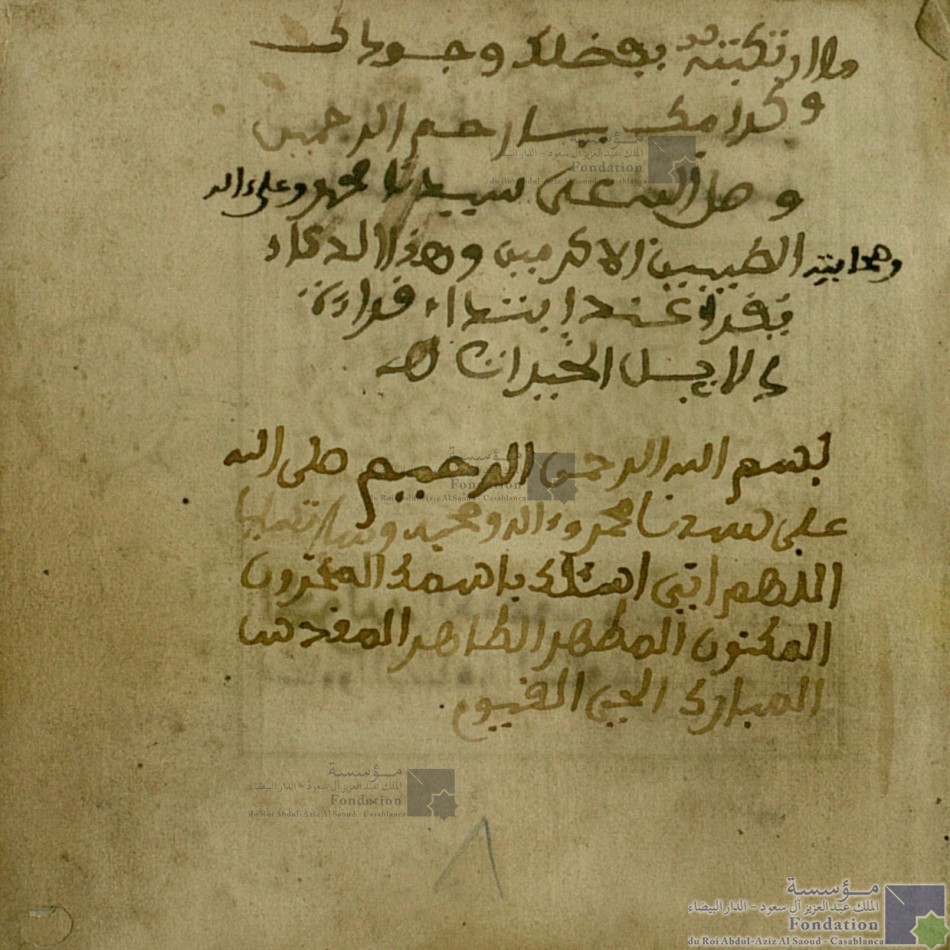 ما ارتكبته بفضلك وجودك
وكرامك يا ارحم الرحمين
وصل الله على سيدنا محمد وعلى ءاله
وصحابته الطيبين الاكرمين وهذا الدعاء
يقرا عند ابتداء قراءة
دلايل الخيرات اهـ
بسم الله الرحمن الرحيم صلى الله
على سيدنا محمد وءاله وصحبه وسلم تسليما
اللهم اني اسئلك باسمك المخزون
المكنون المطهر الطاهر المقدس
المبارك الحي القيوم
مؤسسة
الملك عبد العزيز آل سعود - الدار البيضاء
Fondation
du Roi Abdul-Aziz Al Saoud - Casablanca